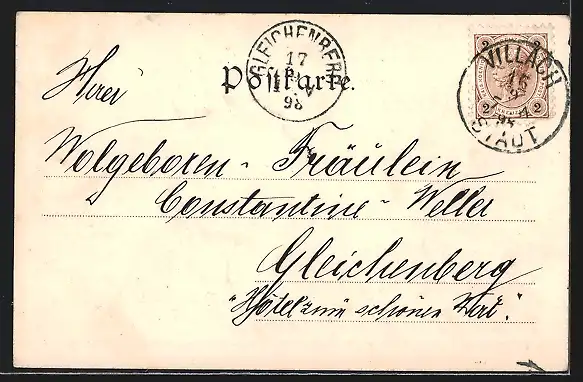 GLEICHENBERG
17
98
Postkarte.
2 2
2 2
VILLACH
STADT
Wolgeboren - Fräulein
Constantine - Weller
Gleichenberg
"Hôtel zum schönen Thal."